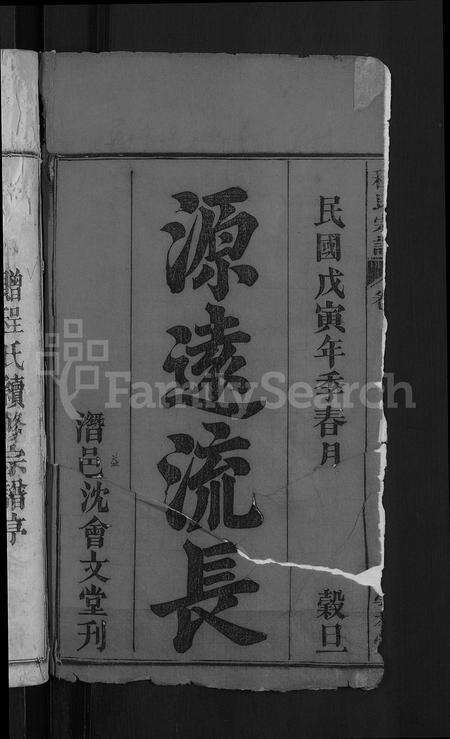 程氏宗譜
卷
民國戊寅年季春月 穀旦
源遠流長
潛邑沈會文堂刊
贈程氏續修宗譜序
FamilySearch